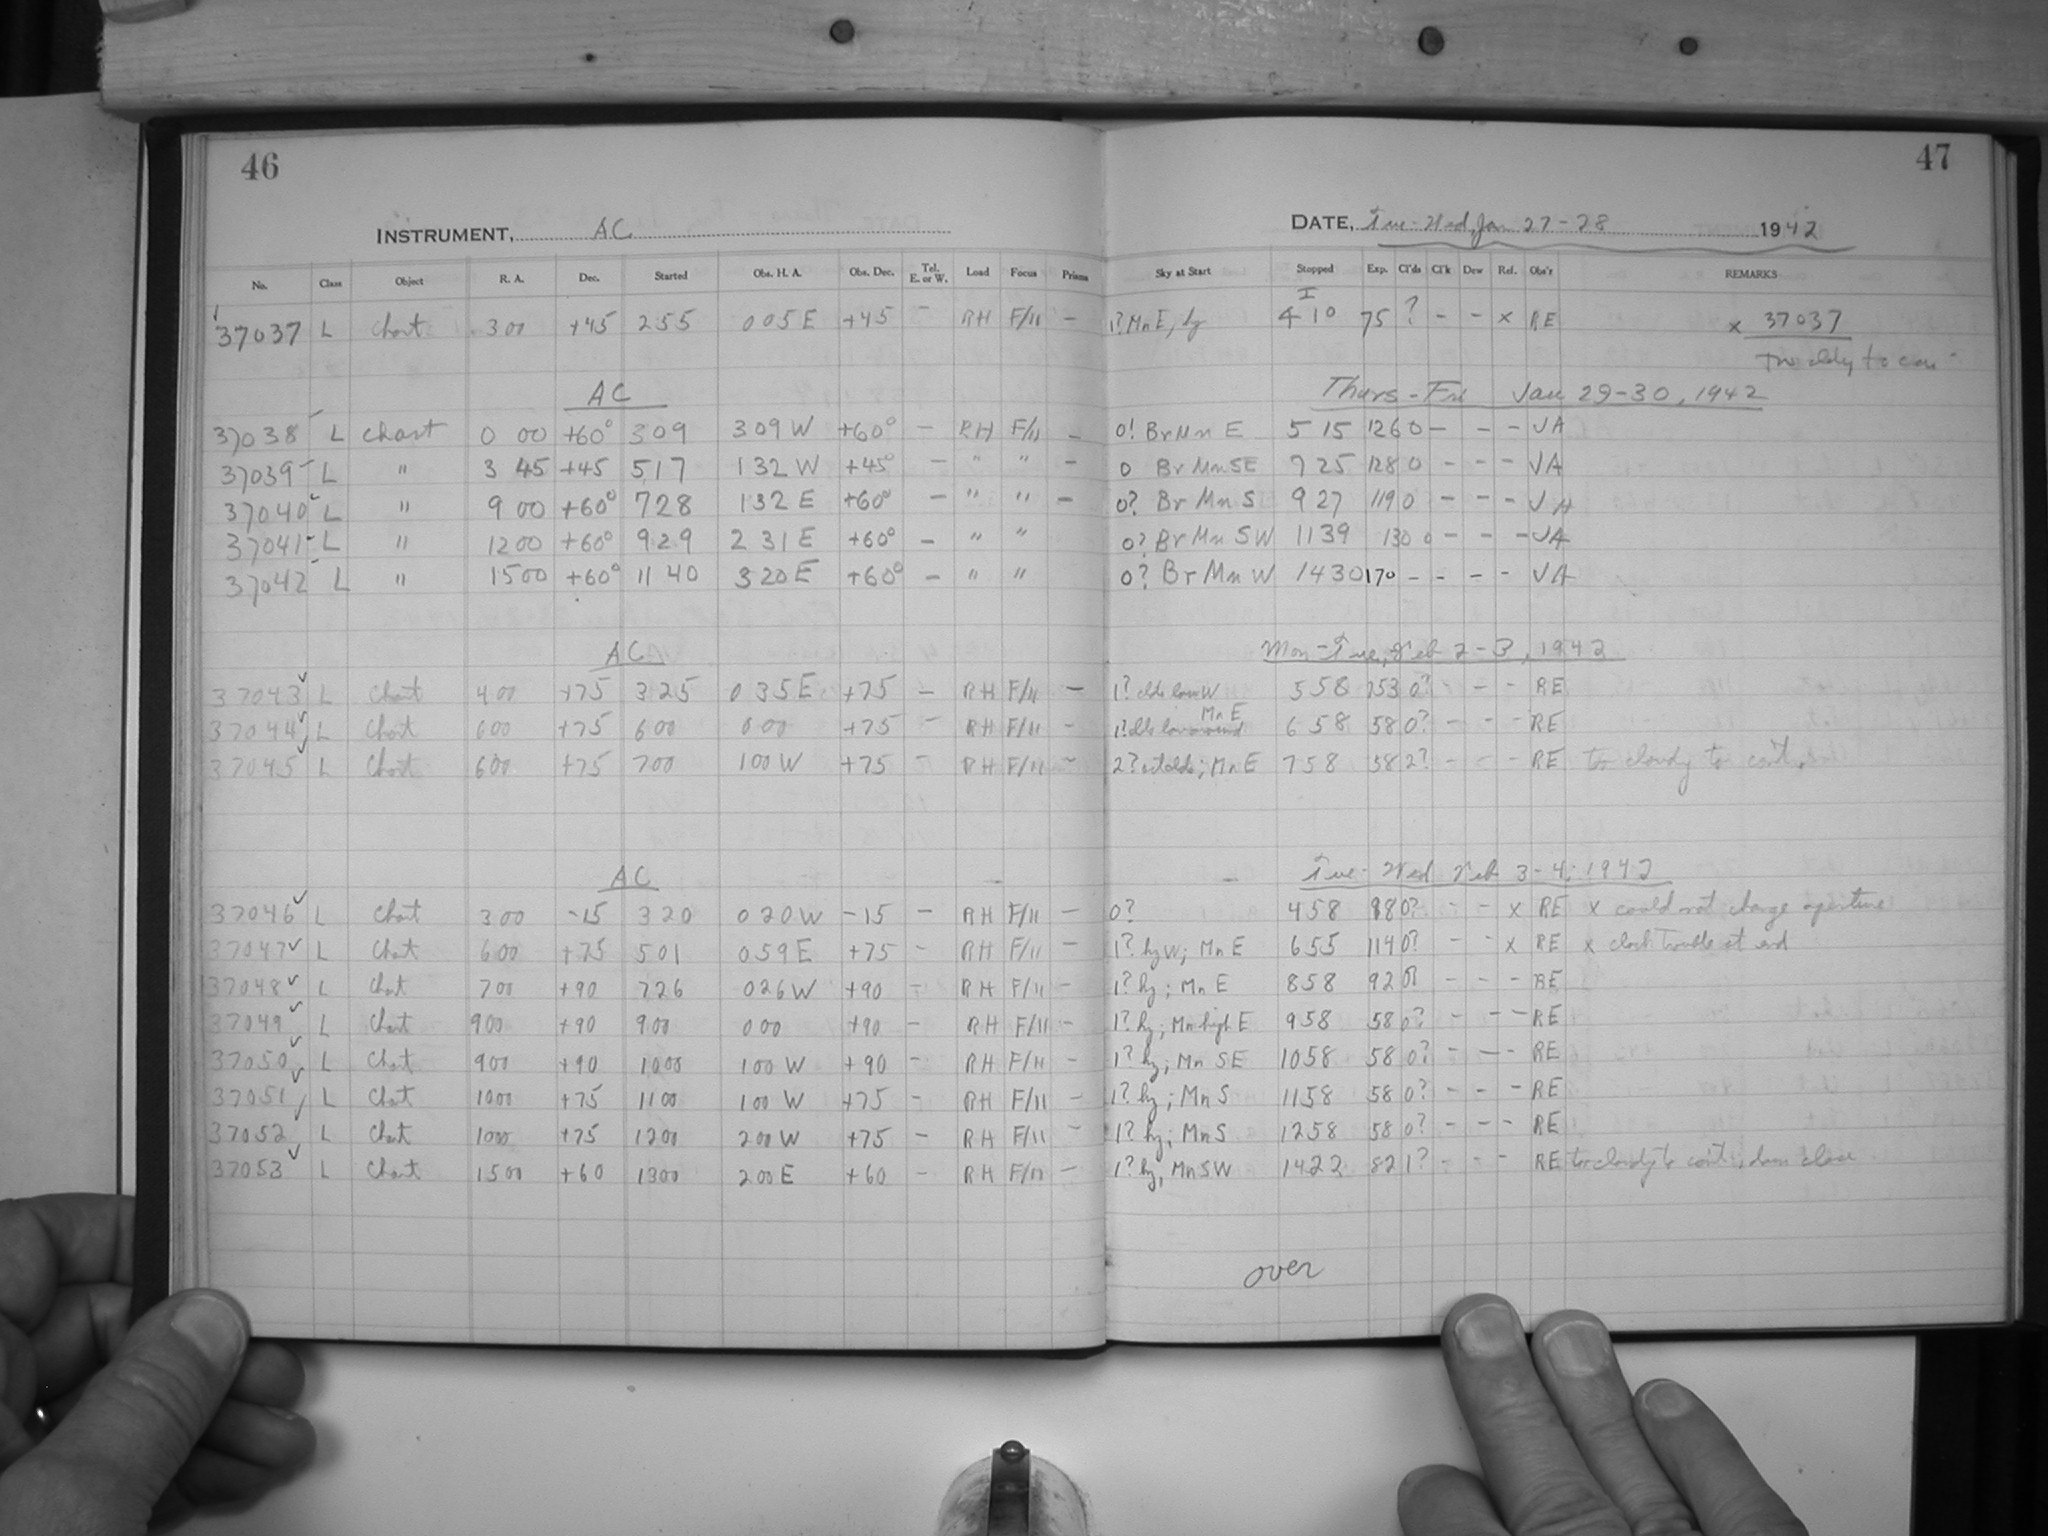 46
47
INSTRUMENT, AC
DATE, Tue-Wed, Jan 27-28 1942
No. Class Object R. A. Dec. Started Obs. H. A. Obs. Dec. Tel. E. or W. Load Focus Prisms Sky at Start Stopped Exp. Cl'ds Cl'k Dew Ref. Obs'r REMARKS
37037 L Chart 300 +45 255 005 E +45 - RH F/11 - 1? Mn E, hy 410 75 ? - - x RE x 37037
cldy to
AC Thurs-Fri Jan 29-30, 1942
37038 L Chart 0 00 +60° 309 309 W +60° - RH F/11 - 0! Br Mn E 515 126 0 - - - JA
37039 L " 3 45 +45 517 132 W +45° - " " - 0 Br Mn SE 725 128 0 - - - JA
37040 L " 9 00 +60° 728 132 E +60° - " " - 0? Br Mn S 927 119 0 - - - JA
37041 L " 1200 +60° 929 231 E +60° - " " 0? Br Mn SW 1139 130 0 - - - JA
37042 L " 1500 +60° 1140 320 E +60° - " " 0? Br Mn W 1430 170 - - - - JA
AC Mon-Tue, Feb 2-3, 1942
37043 L Chart 400 +75 325 035 E +75 - RH F/11 - 1? clds low W 558 153 0? - - - RE
37044 L Chart 600 +75 600 000 +75 - RH F/11 - 1? clds low around Mn E 658 58 0? - - - RE
37045 L Chart 600 +75 700 100 W +75 - RH F/11 - 2? clds; Mn E 758 58 2? - - - RE too cloudy to cont.
AC Tue-Wed Feb 3-4, 1942
37046 L Chart 300 -15 320 020 W -15 - RH F/11 - 0? 458 98 0? - - x RE x could not change aperture
37047 L Chart 600 +75 501 059 E +75 - RH F/11 - 1? hy W; Mn E 655 114 0? - - x RE x clock trouble at end
37048 L Chart 700 +90 726 026 W +90 - RH F/11 - 1? hy; Mn E 858 92 0? - - - RE
37049 L Chart 900 +90 900 000 +90 - RH F/11 - 1? hy; Mn high E 958 58 0? - - - RE
37050 L Chart 900 +90 1000 100 W +90 - RH F/11 - 1? hy; Mn SE 1058 58 0? - - - RE
37051 L Chart 1000 +75 1100 100 W +75 - RH F/11 - 1? hy; Mn S 1158 58 0? - - - RE
37052 L Chart 1000 +75 1200 200 W +75 - RH F/11 - 1? hy; Mn S 1258 58 0? - - - RE
37053 L Chart 1500 +60 1300 200 E +60 - RH F/11 - 1? hy, Mn SW 1422 82 1? - - - RE too cloudy to cont.; close
over